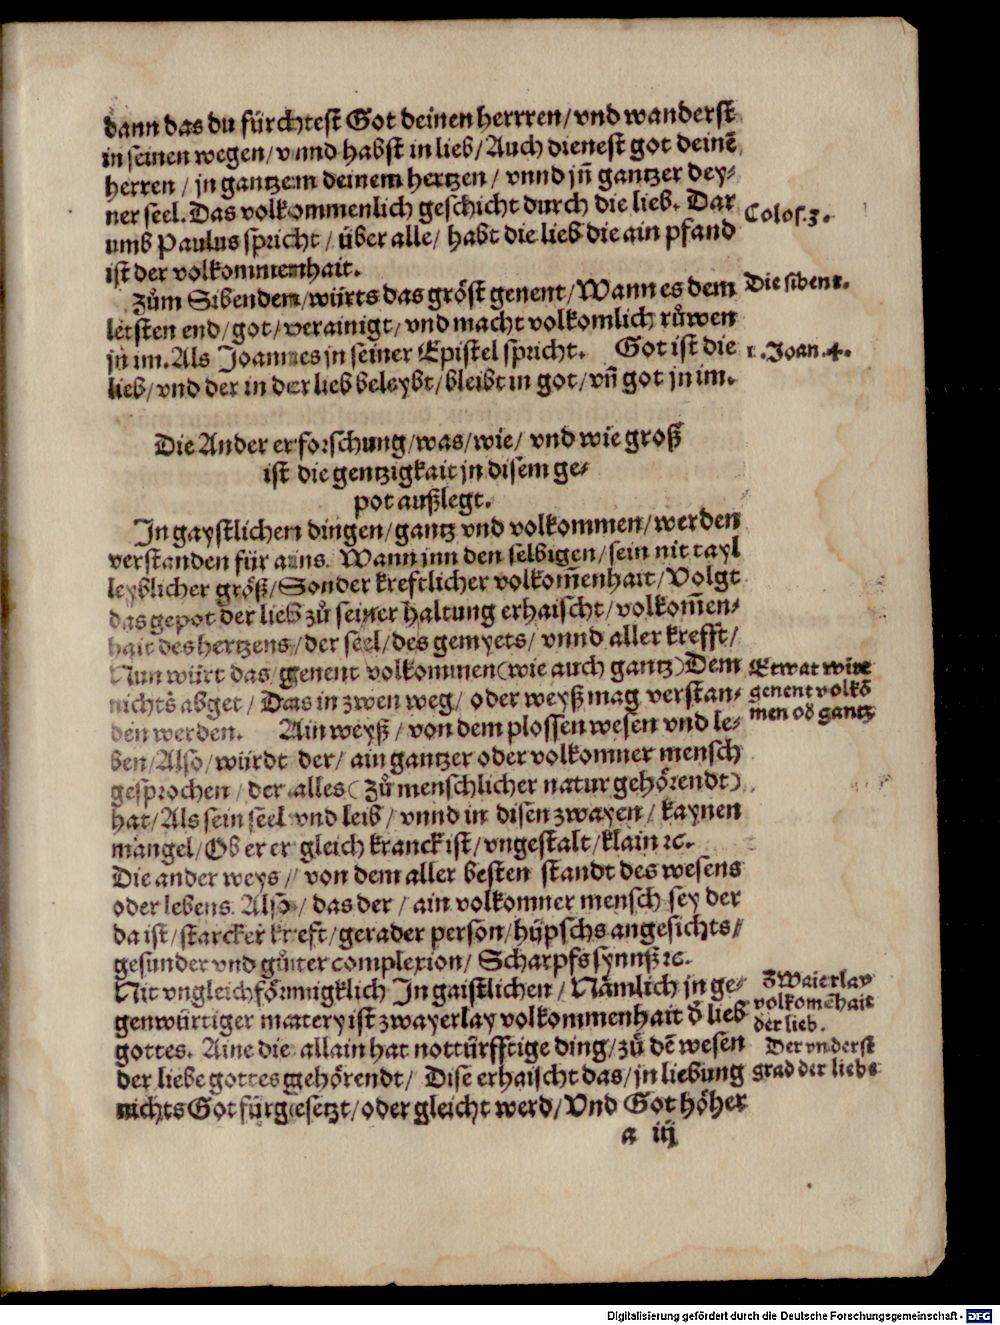 dann das du fürchtest Got deinen herrren/ vnd wanderst
in seinen wegen/ vnnd habst in lieb/ Auch dienest got deinē
herren / jn gantzem deinem hertzen/ vnnd jn̄ gantzer dey⸗
ner seel. Das volkommenlich geschicht durch die lieb. Dar
umb Paulus spricht / über alle/ habt die lieb die ain pfand
Colos. 3.
ist der volkommenhait.
Zům Sibenden/ würts das gröst genent/ Wann es dem
Die sibent.
letsten end/ got/ verainigt/ vnd macht volkomlich růwen
jn im. Als Joannes jn seiner Epistel spricht. Got ist die
1. Joan. 4.
lieb/ vnd der in der lieb beleybt/ bleibt in got/ vn̄ got jn im.
Die Ander erforschung/ was/ wie/ vnd wie groß
ist die gentzigkait jn disem ge⸗
pot außlegt.
In gaystlichen dingen/ gantz vnd volkommen/ werden
verstanden für ains. Wann inn den selbigen/ sein nit tayl
leyblicher größ/ Sonder kreftlicher volkom̄enhait/ Volgt
das gepot der lieb zů seiner haltung erhaischt/ volkom̄en⸗
hait des hertzens/ der seel/ des gemyets/ vnnd aller krefft/
Nun würt das/ genent volkommen (wie auch gantz) Dem
Etwat wirt
nichts abget/ Das in zwen weg/ oder weyß mag verstan⸗
genent volkō
den werden. Ain weyß / von dem plossen wesen vnd le⸗
men oď gantz
ben/ Also/ würdt der/ ain gantzer oder volkomner mensch
gesprochen / der alles (zů menschlicher natur gehörendt)
hat/ Als sein seel vnd leib / vnnd in disen zwayen / kaynen
mangel/ Ob er er gleich kranck ist/ vngestalt/ klain ꝛc.
Die ander weys / von dem aller besten standt des wesens
oder lebens. Also / das der / ain volkomner mensch sey der
da ist/ starcker kreft/ gerader person/ hüpschs angesichts/
gesunder vnd gůtter complexion/ Scharpfs synnß ꝛc.
Nit vngleichförmigklich In gaistlichen / Nämlich jn ge⸗
Zwaierlay
genwürtiger matery ist zwayerlay volkommenhait ď lieb
volkomēhait
der lieb.
gottes. Aine die allain hat nottürfftige ding/ zů dē wesen
Der vnderst
der liebe gottes gehörendt/ Dise erhaischt das/ jn liebung
grad der liebe
nichts Got fürgesetzt/ oder gleicht werd/ Vnd Got höher
a iij
Digitalisierung gefördert durch die Deutsche Forschungsgemeinschaft - DFG